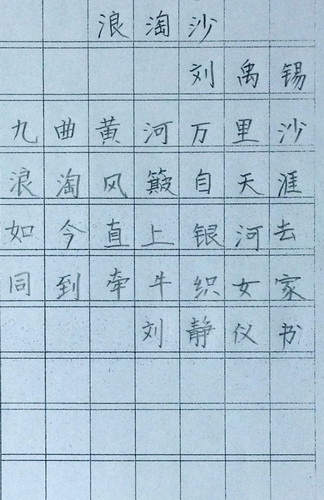 浪淘沙
刘禹锡
九曲黄河万里沙
浪淘风簸自天涯
如今直上银河去
同到牵牛织女家
刘静仪书